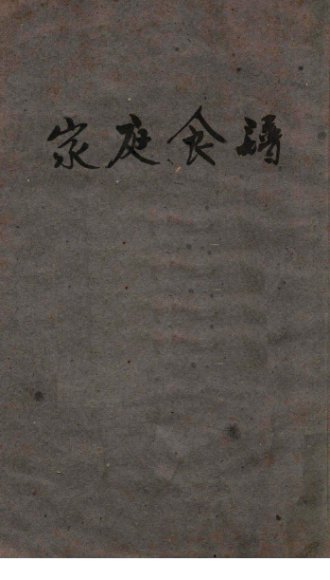 家庭食譜